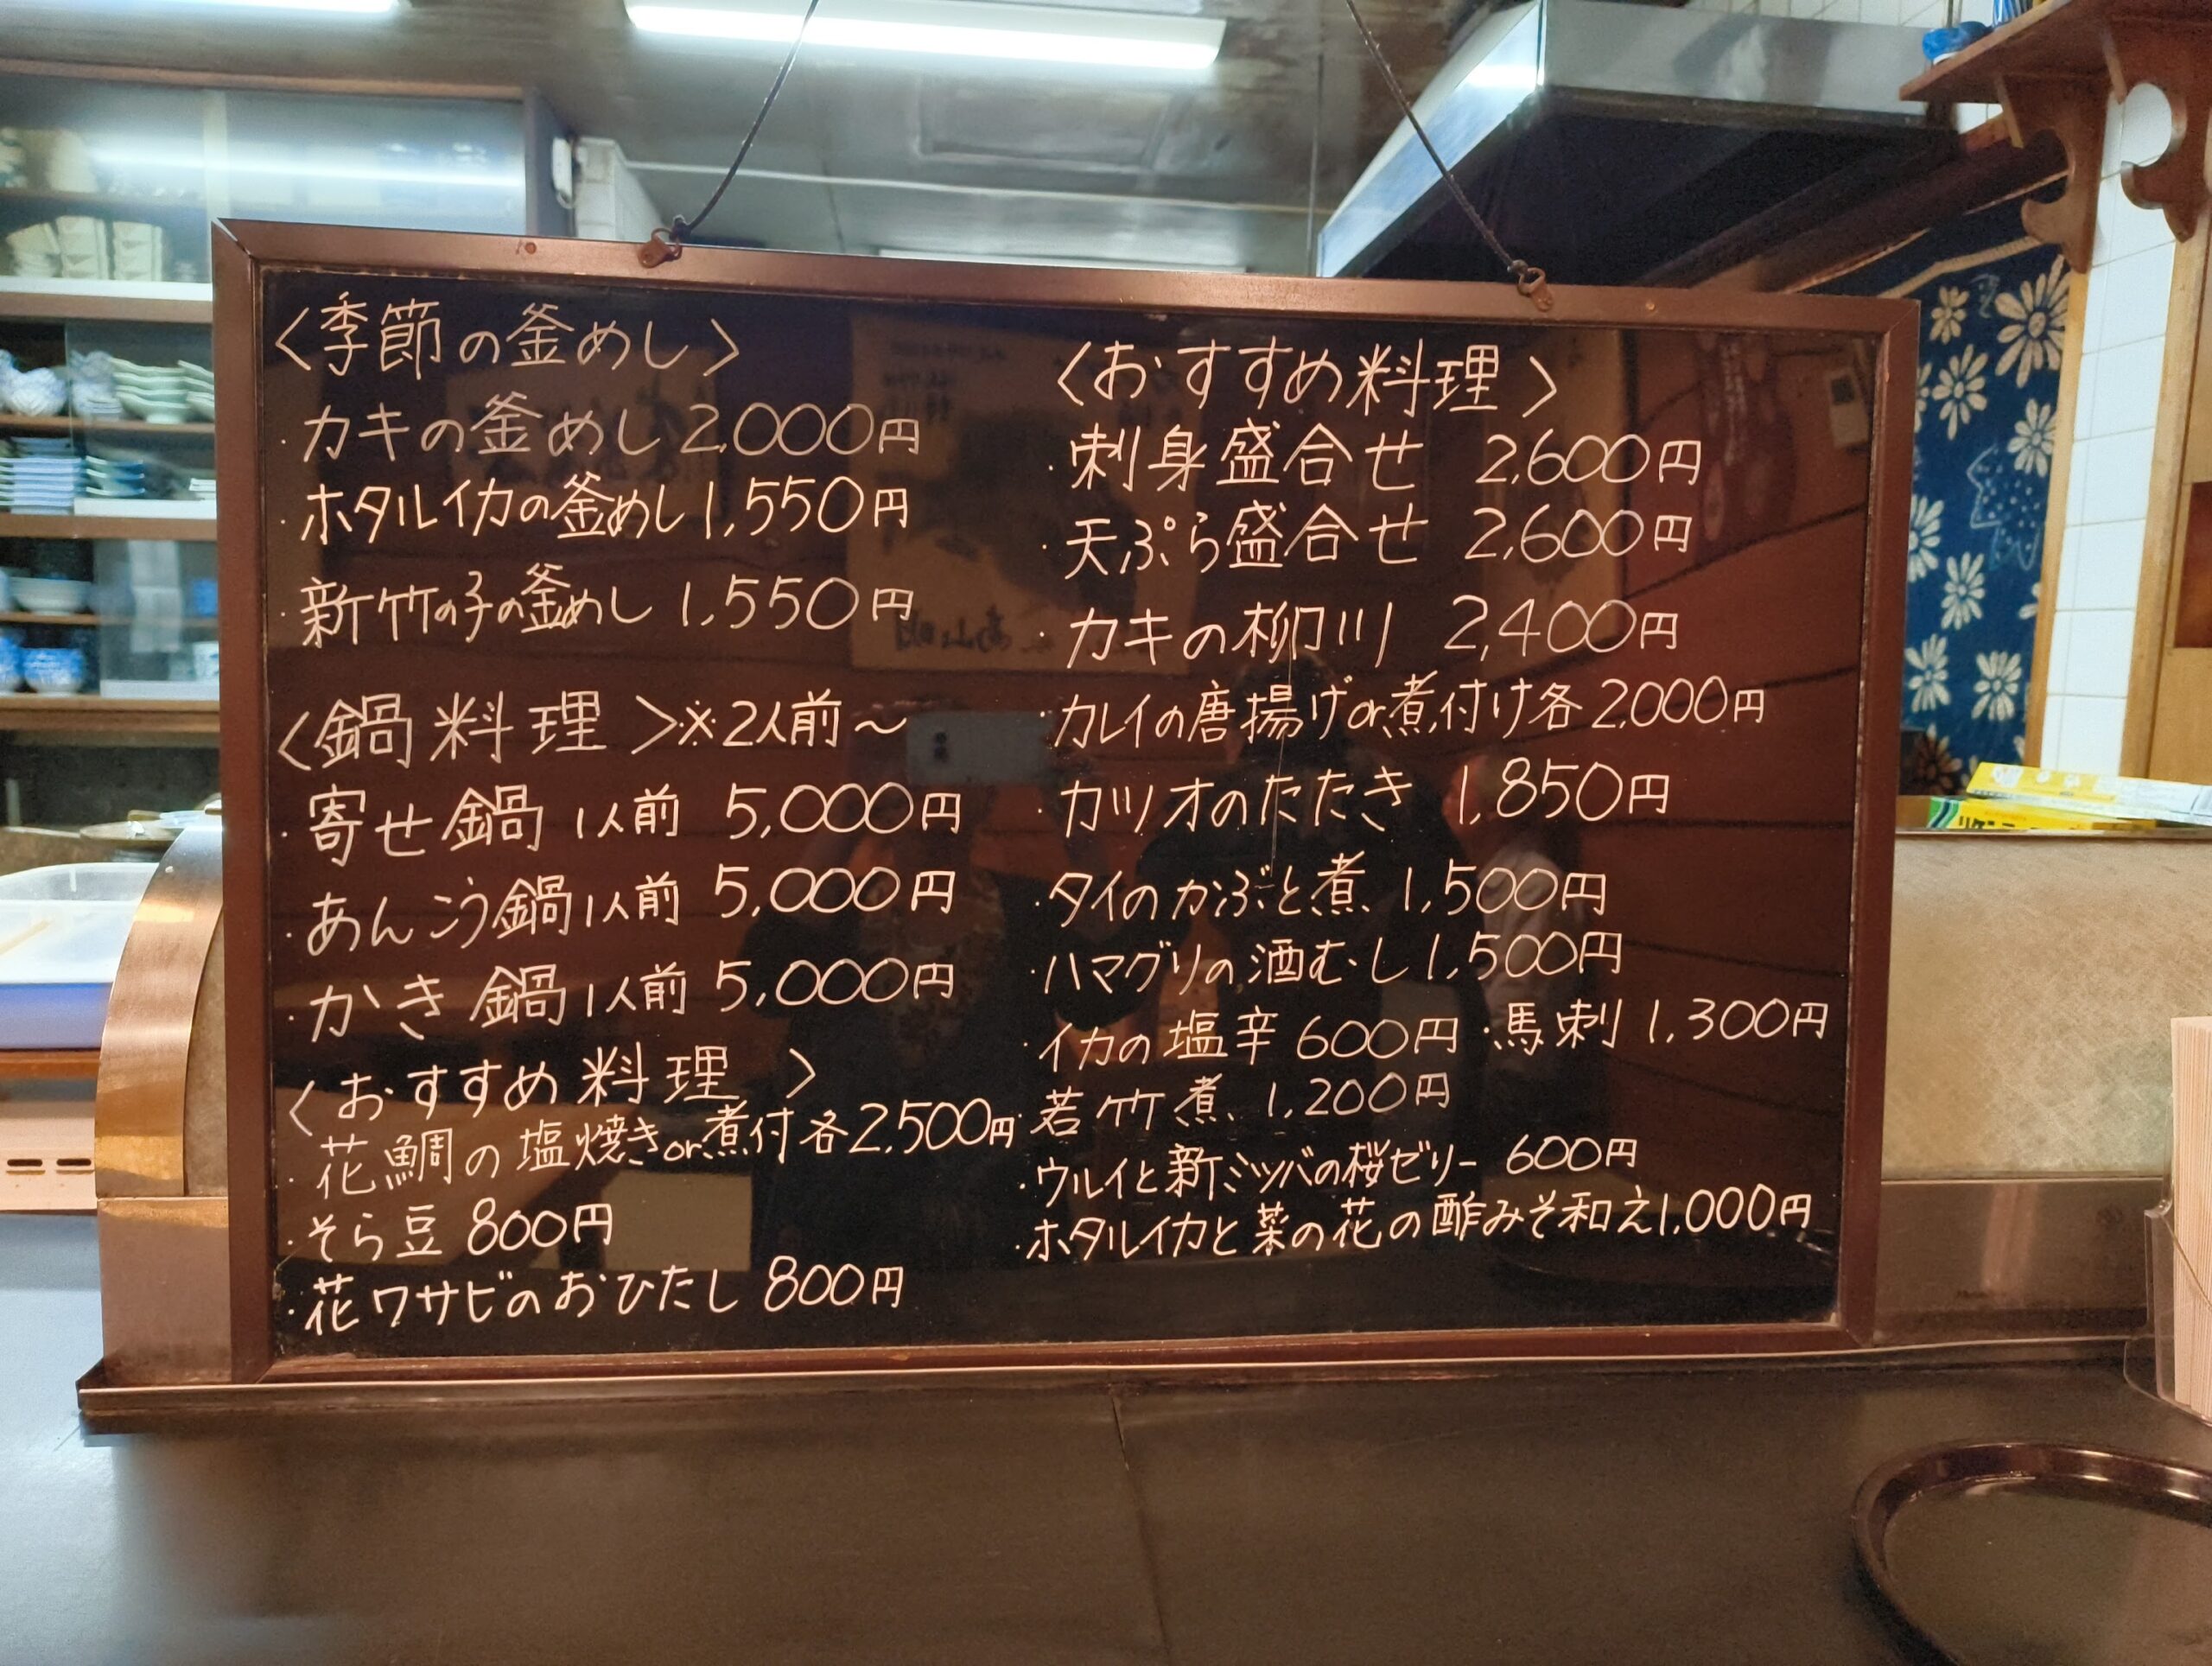 〈季節の釜めし〉
・カキの釜めし 2,000円
・ホタルイカの釜めし 1,550円
・新竹の子の釜めし 1,550円
〈鍋料理〉※2人前〜
・寄せ鍋 1人前 5,000円
・あんこう鍋 1人前 5,000円
・かき鍋 1人前 5,000円
〈おすすめ料理〉
・花鯛の塩焼きor煮付各2,500円
・そら豆 800円
・花ワサビのおひたし 800円
〈おすすめ料理〉
・刺身盛合せ 2,600円
・天ぷら盛合せ 2,600円
・カキの柳川 2,400円
・カレイの唐揚げor煮付け各2,000円
・カツオのたたき 1,850円
・タイのかぶと煮 1,500円
・ハマグリの酒むし 1,500円
・イカの塩辛 600円 ・馬刺 1,300円
・若竹煮 1,200円
・ウルイと新ミツバの桜ゼリー 600円
・ホタルイカと菜の花の酢みそ和え1,000円